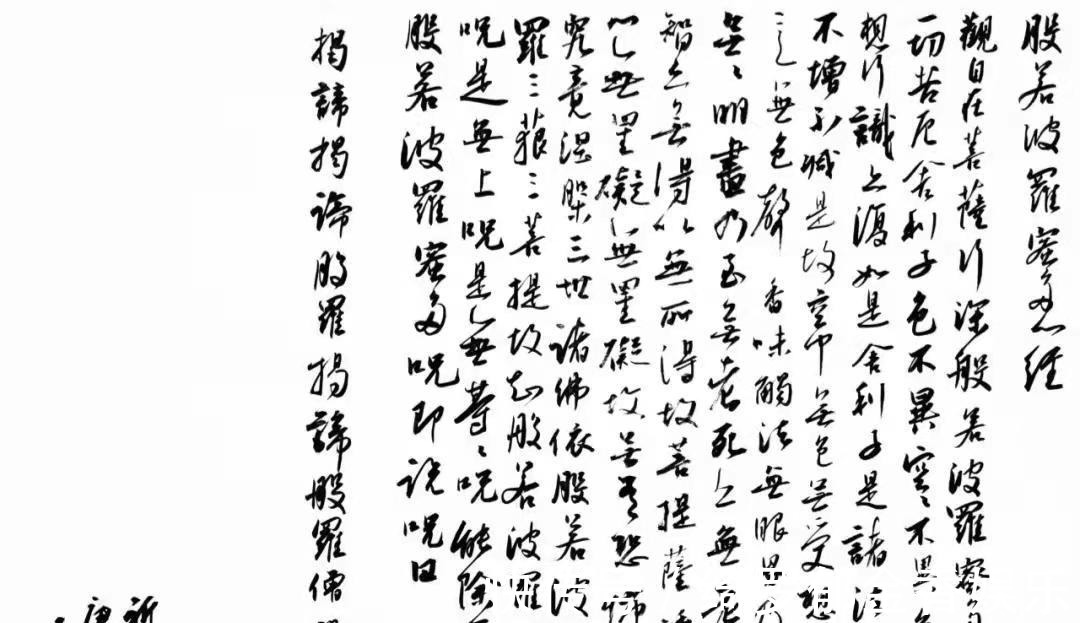 般若波羅蜜多心經
觀自在菩薩行深般若波羅蜜多
一切苦厄舍利子色不異空〻不異
想行識亦復如是舍利子是諸法
不增不減是故空中無色無受想
亦無色聲香味觸法無眼界
無〻明盡乃至無老死亦無老
智亦無得以無所得故菩提薩
心無罣礙〻無罣礙故無有恐怖
究竟涅槃三世諸佛依般若波
羅三藐三菩提故知般若波羅
咒是無上咒是無等〻咒能除一
般若波羅蜜多咒即說咒曰
揭諦揭諦般羅揭諦般羅僧